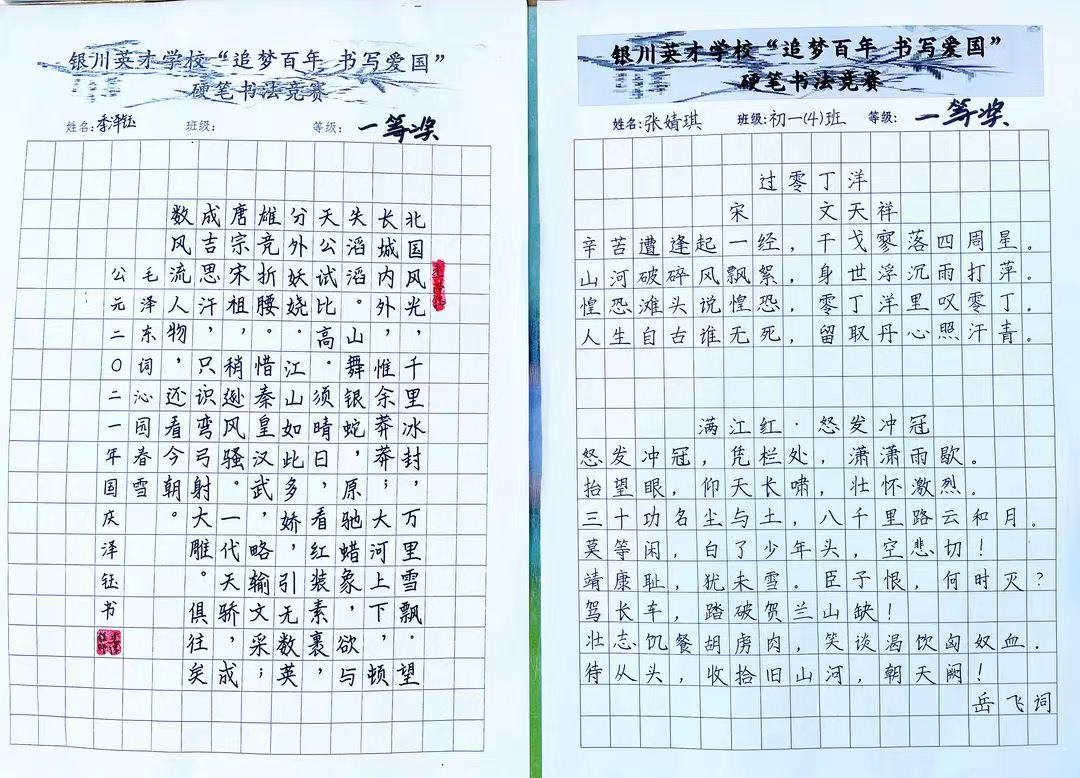 银川英才学校“追梦百年 书写爱国”
硬笔书法竞赛
姓名：季泽钰 班级： 等级：一等奖
北国风光，千里冰封，万里雪飘．望
长城内外，惟余莽莽；大河上下，顿
失滔滔。山舞银蛇，原驰蜡象，欲与
天公试比高．须晴日，看红装素裹
分外妖娆．江山如此多娇，引无数英
雄竞折腰。惜秦皇汉武，略输文采；
唐宗宋祖，稍逊风骚。一代天骄，成
成吉思汗，只识弯弓射大雕。俱往矣
数风流人物，还看今朝。
毛泽东词 沁园春雪
公元二〇二一年国庆泽钰书
银川英才学校“追梦百年 书写爱国”
硬笔书法竞赛
姓名：张婧琪 班级：初一(4)班 等级：一等奖
过零丁洋
宋 文天祥
辛苦遭逢起一经，干戈寥落四周星。
山河破碎风飘絮，身世浮沉雨打萍。
惶恐滩头说惶恐，零丁洋里叹零丁。
人生自古谁无死，留取丹心照汗青。
满江红·怒发冲冠
怒发冲冠，凭栏处，潇潇雨歇。
抬望眼，仰天长啸，壮怀激烈。
三十功名尘与土，八千里路云和月．
莫等闲，白了少年头，空悲切！
靖康耻，犹未雪．臣子恨，何时灭？
驾长车，踏破贺兰山缺！
壮志饥餐胡虏肉，笑谈渴饮匈奴血．
待从头，收拾旧山河，朝天阙！
岳飞词